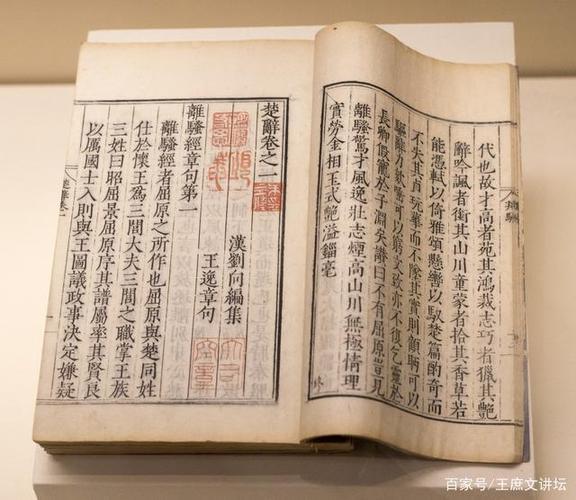 代也故才高者苑其鴻裁志巧者獵其艷
辭吟諷者銜其山川童蒙者拾其香草若
能憑軾以倚雅頌懸轡以馭楚篇酌奇而
不失其貞玩華而不墜其實則顧盼可以
驅辭力欬唾可以窮文致亦不復乞靈於
長卿假寵於子淵矣贊曰不有屈原豈見
離騷驚才風逸壯志煙高山川無極情理
實勞金相玉式艷溢錙毫
楚辭卷之一
漢劉向編集
王逸章句
離騷經章句第一
離騷經者屈原之所作也屈原與楚同姓
仕於懷王為三閭大夫三閭之職掌王族
三姓曰昭屈景屈原序其譜屬率其賢良
以厲國士入則與王圖議政事決定嫌疑
百家号/王庶文讲坛